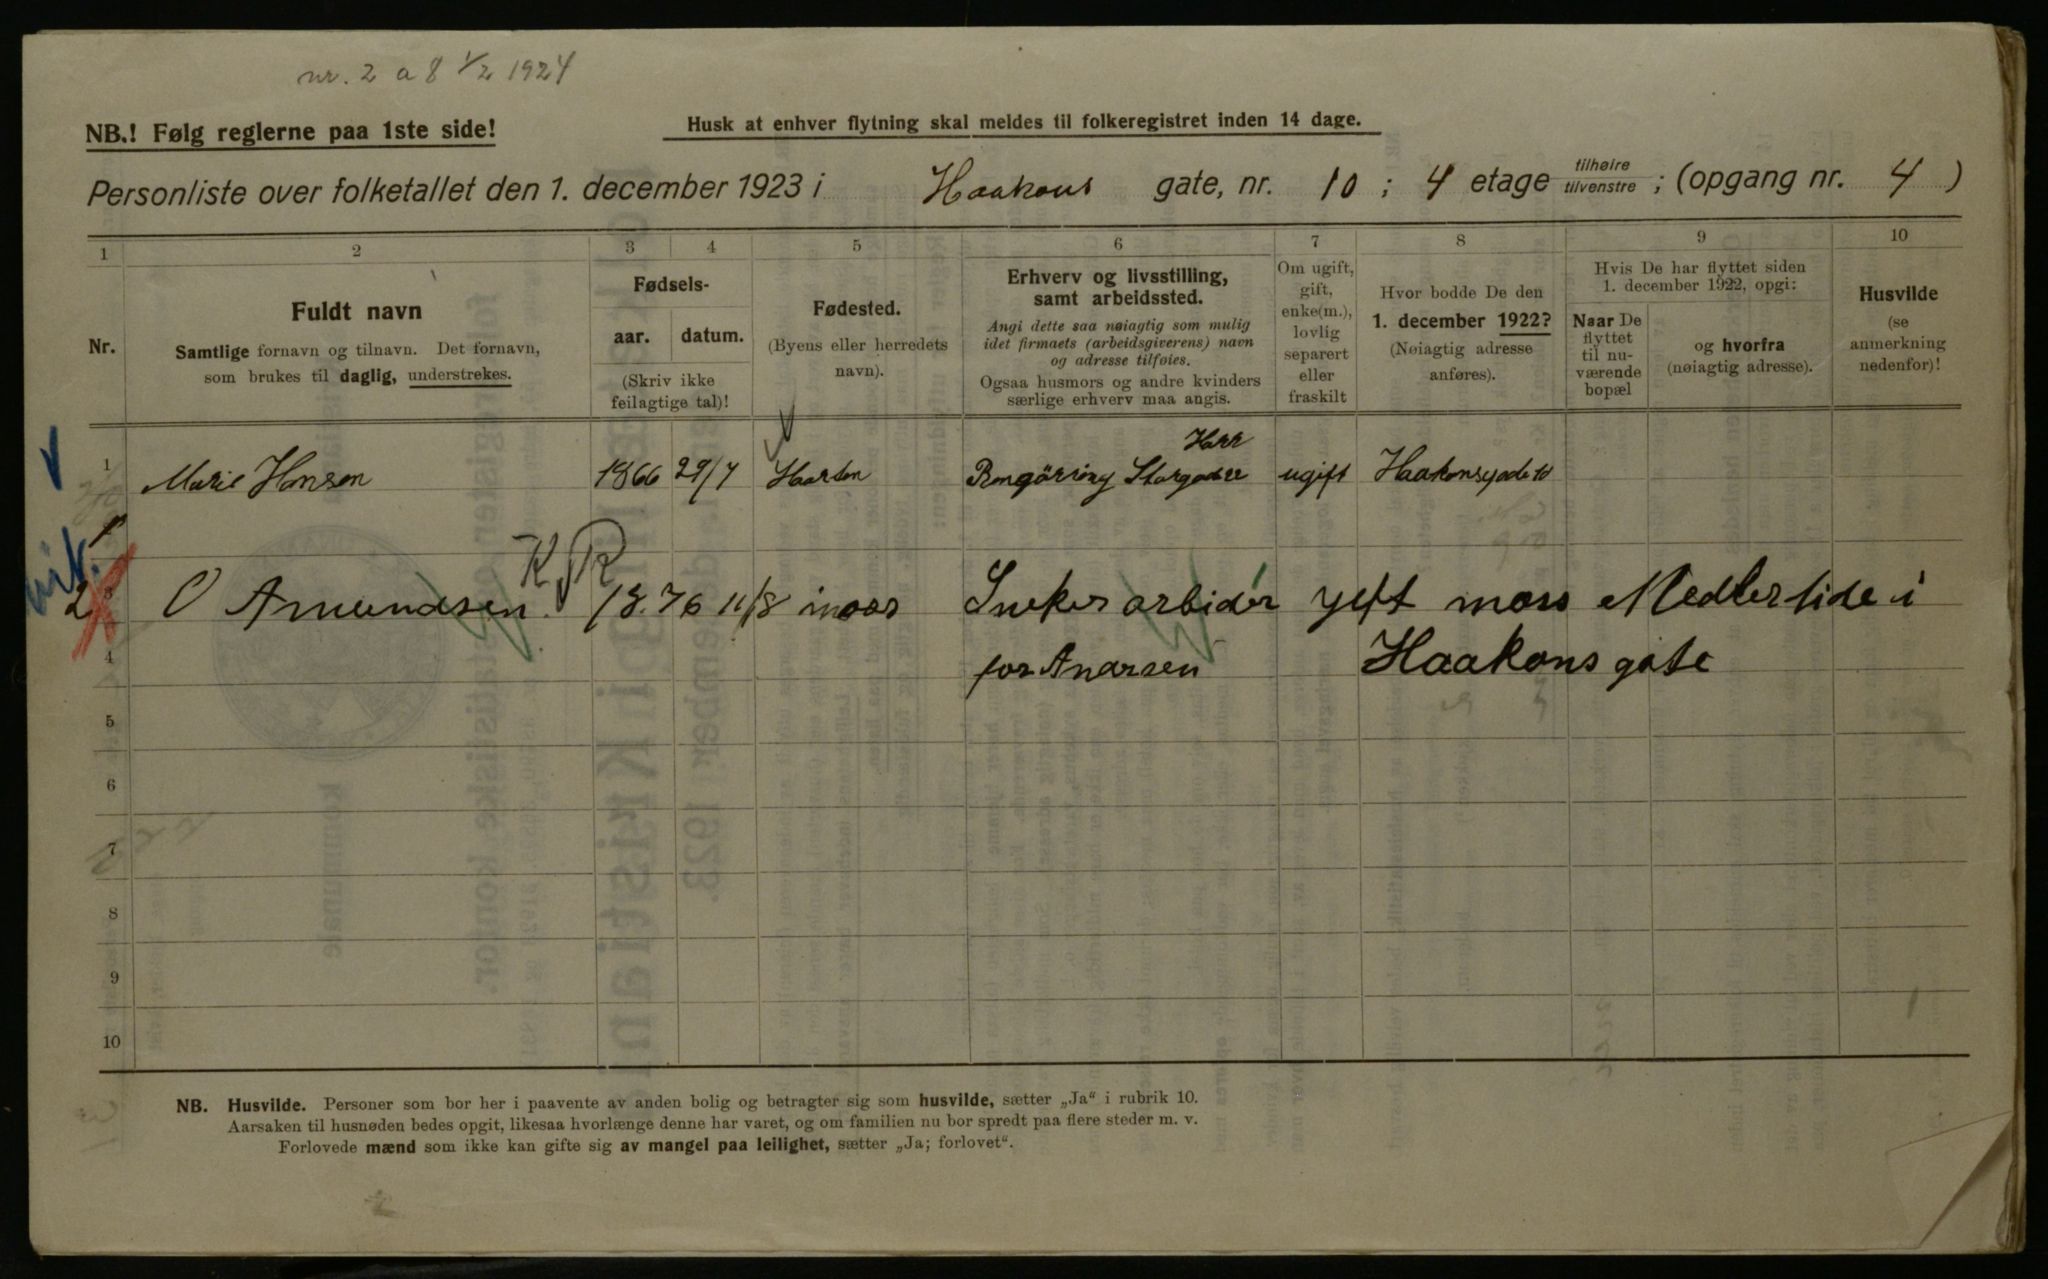 nr. 2 a 8 1/2 1924
NB.! Følg reglerne paa 1ste side!
Husk at enhver flytning skal meldes til folkeregistret inden 14 dage.
Personliste over folketallet den 1. december 1923 i Haakons gate, nr. 10 ; 4 etage tilhøire tilvenstre ; (opgang nr. 4 )
1 2 3 4 5 6 7 8 9 10
Nr.
Fuldt navn
Samtlige fornavn og tilnavn. Det fornavn,
som brukes til daglig, understrekes.
Fødsels-
aar. datum.
(Skriv ikke
feilagtige tal)!
Fødested.
(Byens eller herredets
navn).
Erhverv og livsstilling,
samt arbeidssted.
Angi dette saa nøiagtig som mulig
idet firmaets (arbeidsgiverens) navn
og adresse tilføies.
Ogsaa husmors og andre kvinders
særlige erhverv maa angis.
Om ugift,
gift,
enke(m.),
lovlig
separert
eller
fraskilt
Hvor bodde De den
1. december 1922?
(Nøiagtig adresse
anføres).
Hvis De har flyttet siden
1. december 1922, opgi:
Naar De
flyttet
til nu-
værende
bopæl
og hvorfra
(nøiagtig adresse).
Husvilde
(se
anmerkning
nedenfor)!
1 Marie Hansen 1866 29/7 ugift Haakonsgade 10
K.R
2 O Amundsen 18.76 11/8 moss Sneker arbidér gift moss Medlertide i
4 for Anarsen Haakons gate
5
6
7
8
9
10
NB. Husvilde. Personer som bor her i paavente av anden bolig og betragter sig som husvilde, sætter „Ja“ i rubrik 10.
Aarsaken til husnøden bedes opgit, likesaa hvorlænge denne har varet, og om familien nu bor spredt paa flere steder m. v.
Forlovede mænd som ikke kan gifte sig av mangel paa leilighet, sætter „Ja; forlovet“.